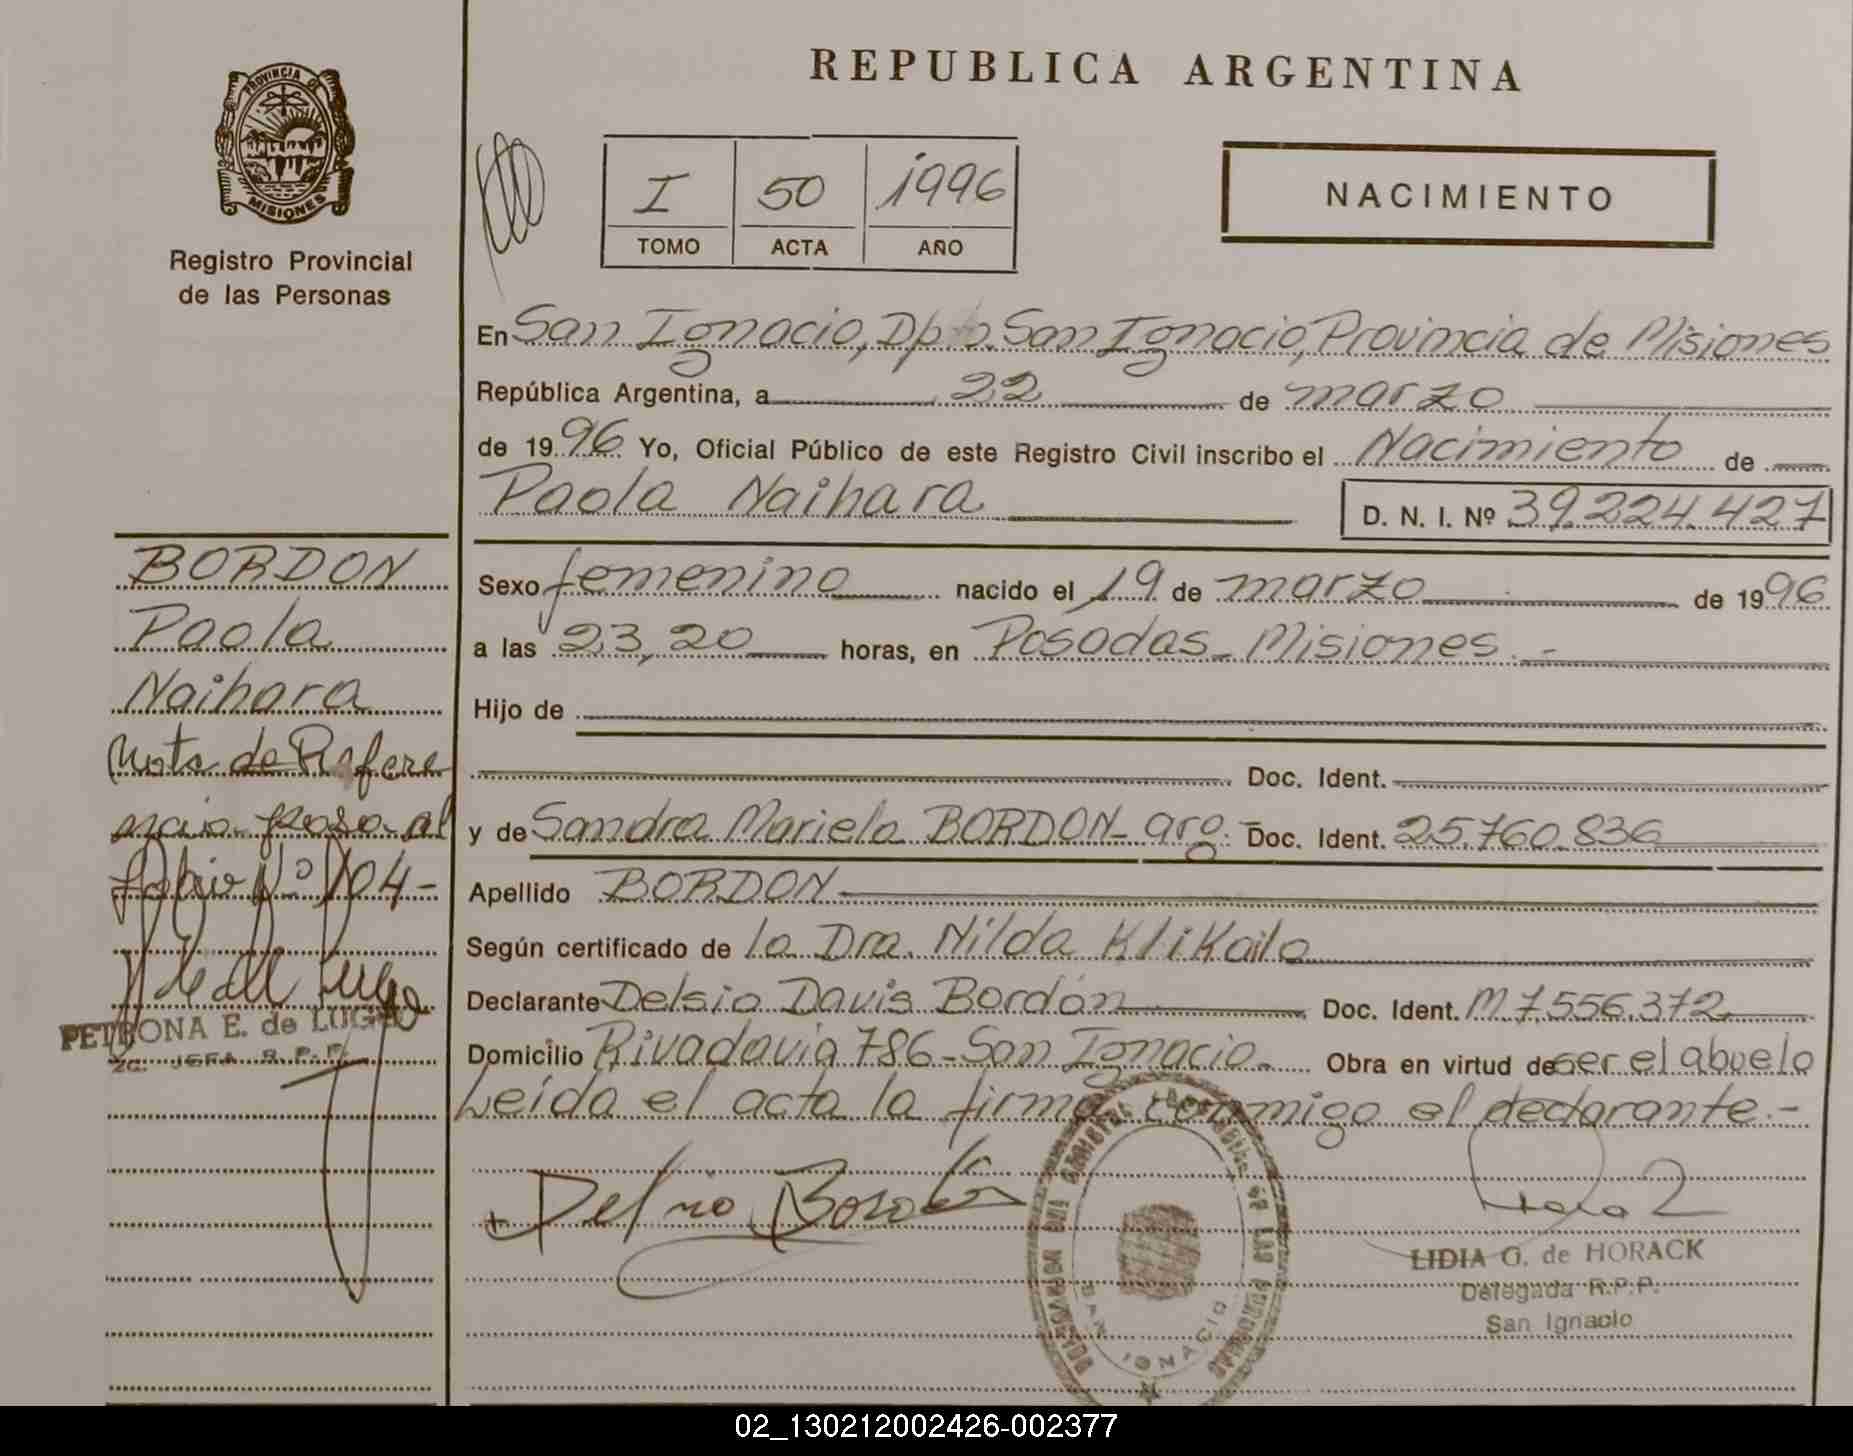 PROVINCIA DE
MISIONES
Registro Provincial
de las Personas
REPUBLICA ARGENTINA
I 50 1996
TOMO ACTA AÑO
NACIMIENTO
En San Ignacio, Dpto. San Ignacio, Provincia de Misiones
República Argentina, a 22 de marzo
de 1996 Yo, Oficial Público de este Registro Civil inscribo el Nacimiento de
Paola Naihara D. N. I. Nº 39.224.427
Sexo femenino nacido el 19 de marzo de 1996
a las 23,20 horas, en Posadas - Misiones.-
Hijo de
Doc. Ident.
y de Sandra Mariela BORDON - arg.- Doc. Ident. 25.760.836
Apellido BORDON
Según certificado de la Dra. Nilda Klikailo
Declarante Delsio Davis Bordón Doc. Ident. M 7.556.372
Domicilio Rivadavia 786 - San Ignacio. Obra en virtud de ser el abuelo
Leída el acta la firma conmigo el declarante.-
LIDIA G. de HORACK
Delegada R.P.P.
San Ignacio
SAN IGNACIO
BORDON
Paola
Naihara
Nota de Refere
ncia paso al
folio Nº 104-
PETRONA E. de LUGO
JEFA R. P. P.
02_130212002426-002377